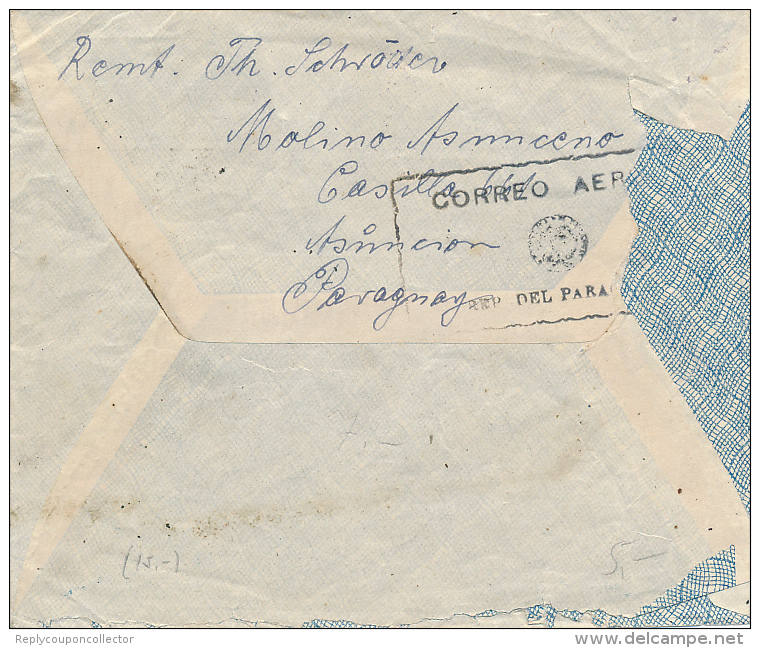 Remt. Th. Schröder
Molino Asunceno
Casilla
CORREO AER
Asůncion
Paraguay
REP. DEL PARA
7,-
(15,-)
5,-
Replycouponcollector
delcampe.net